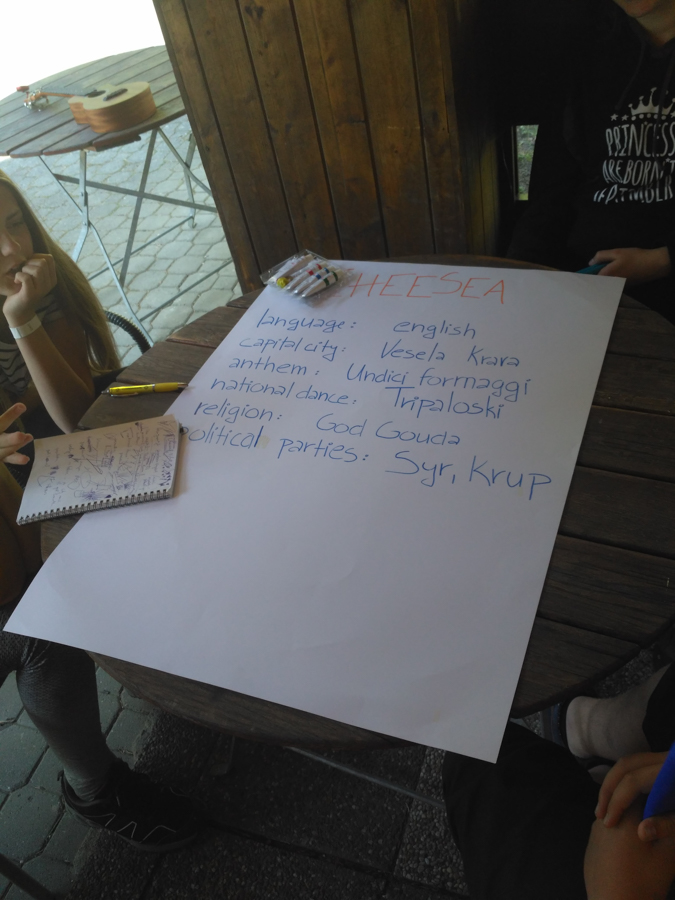 HEESEA
language: english
capital city: Vesela Krava
anthem: Undici formaggi
national dance: Tripaloski
religion: God Gouda
olitical parties: Syr, Krup
PRINCESS
ARE BORN